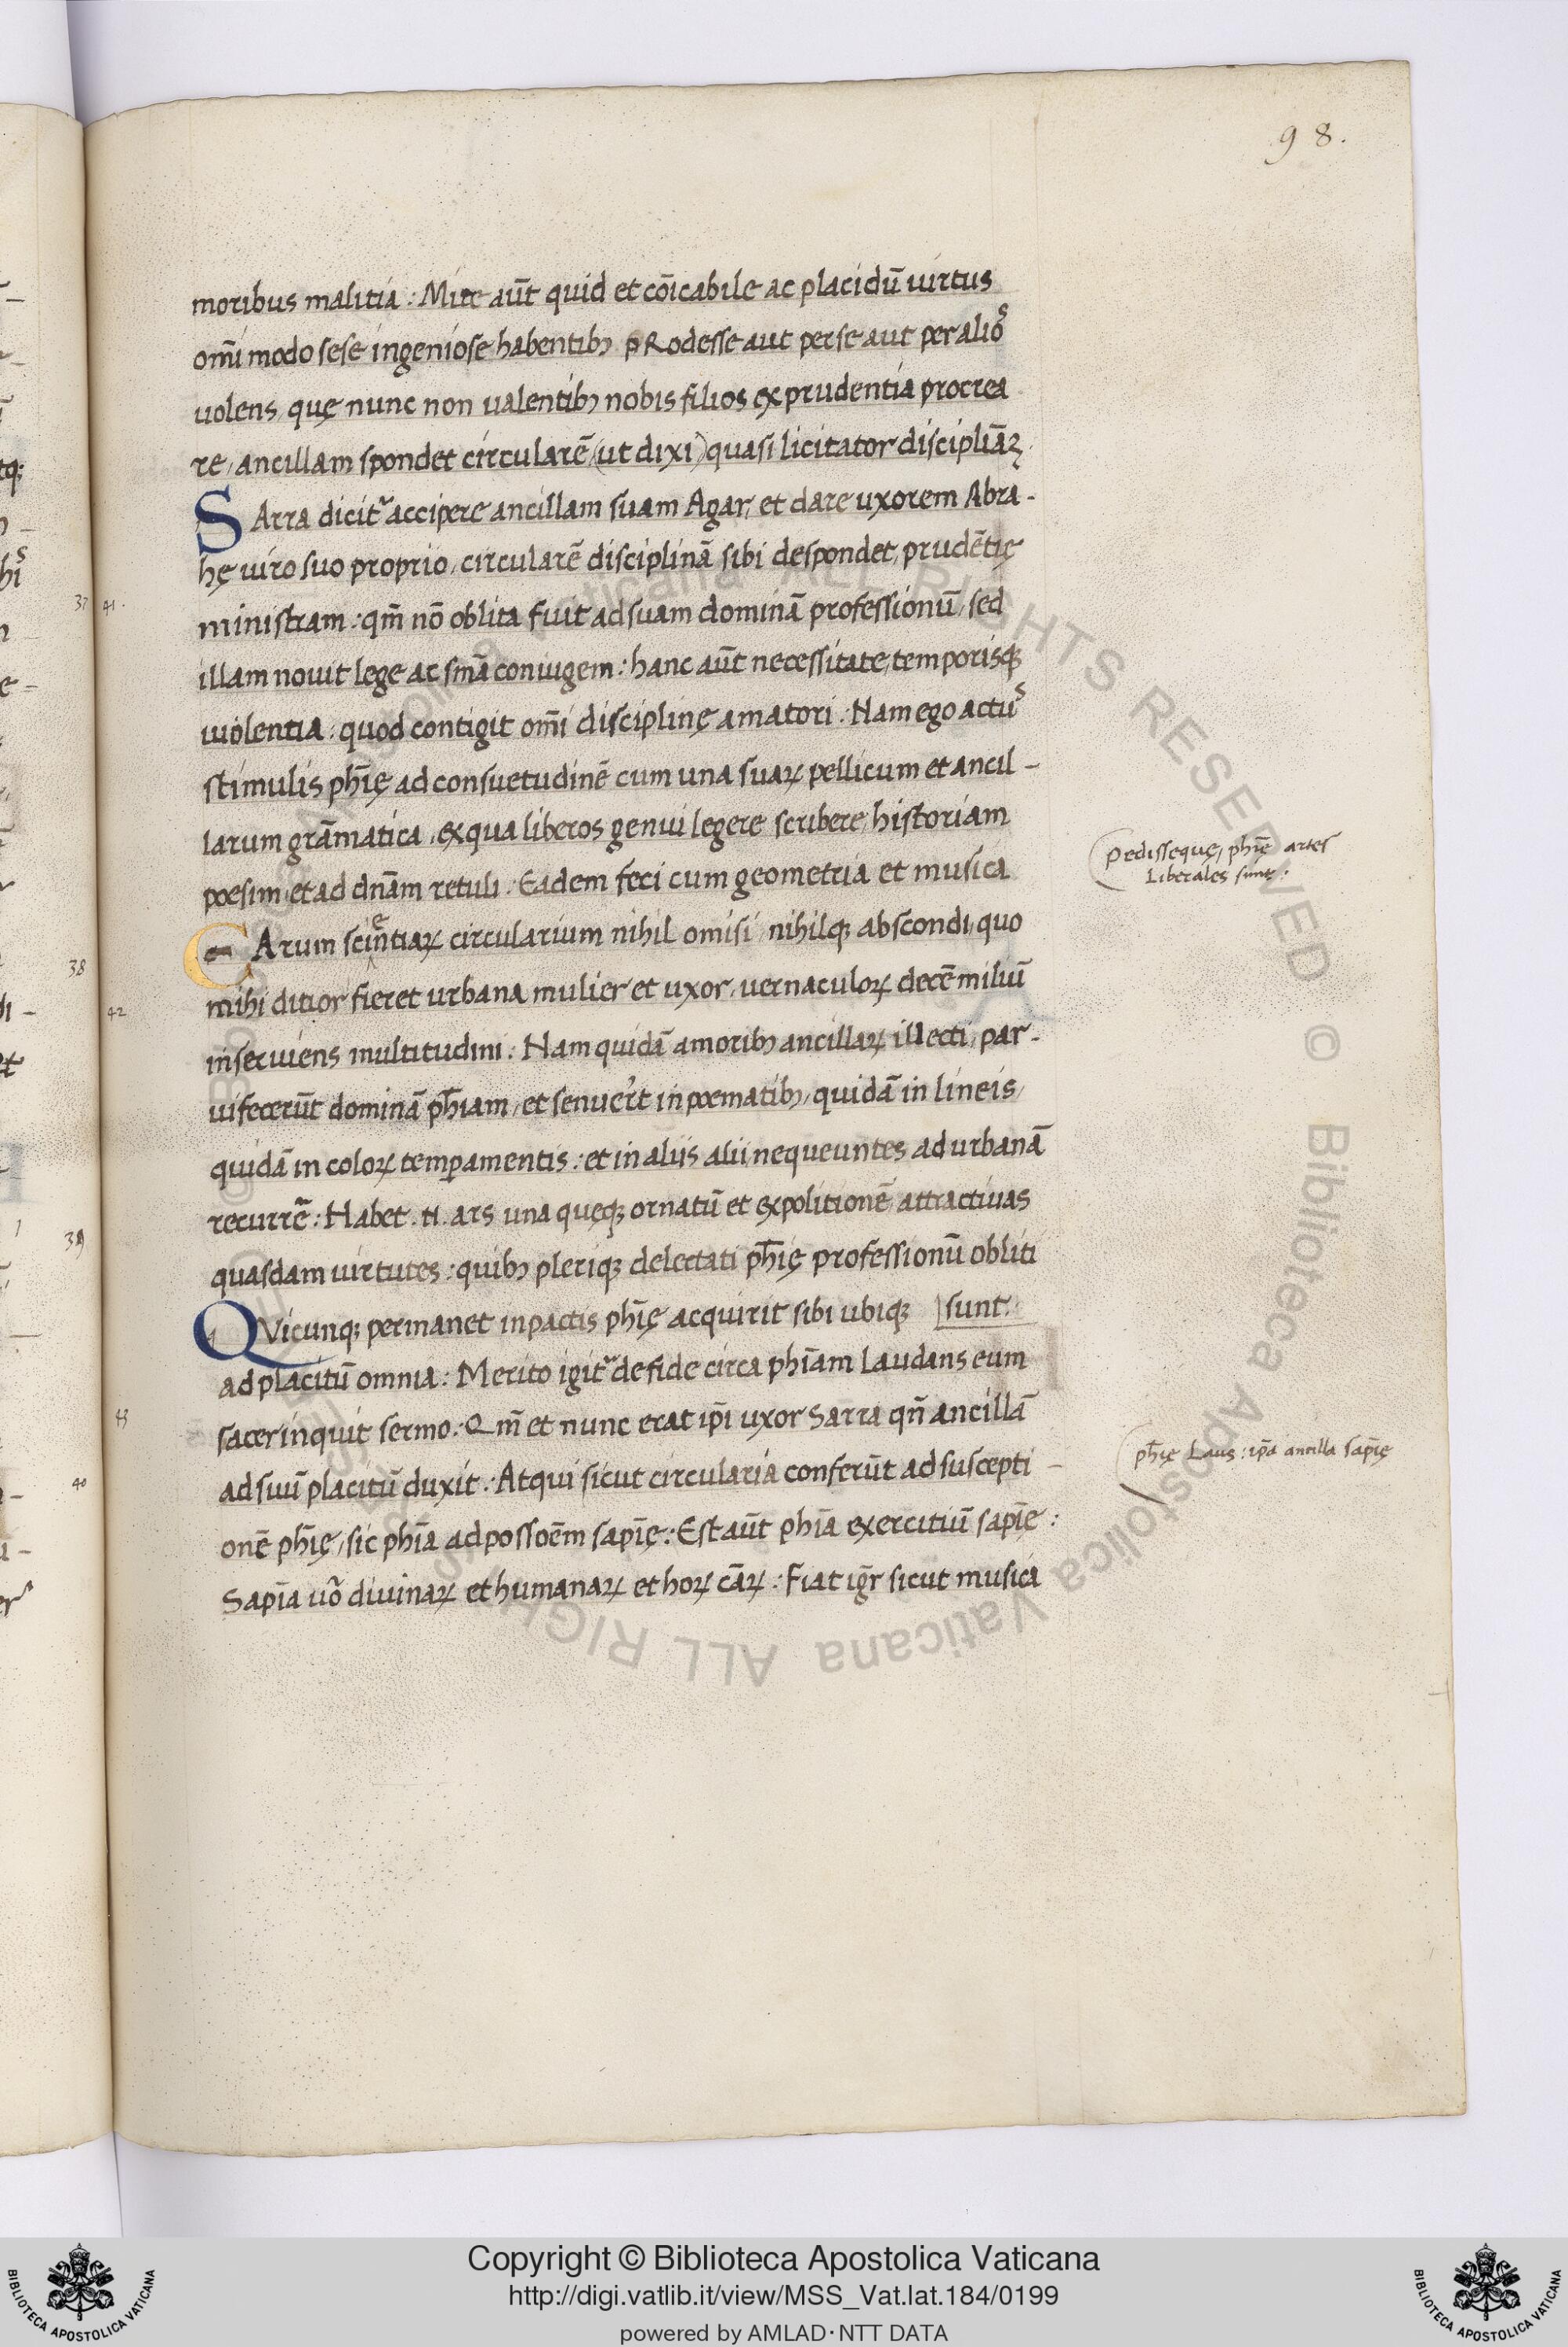 98.
moribus malitia : Mite aūt quid et cōicabile ac placidū uirtus
om̄i modo sese ingeniose habentibꝫ pRodesse aut per se aut per alios
uolens, quę nunc non ualentibꝫ nobis filios ex prudentia procrea
re, ancillam spondet circularē (ut dixi) quasi licitator discipliāꝝ.
SArra dicitᷣ accipere ancillam suam Agar, et dare uxorem Abra-
hę uiro suo proprio, circularē disciplinā sibi despondet, prudētię
ministram : qm̄ nō oblita fuit ad suam dominā professionū, sed
illam nouit lege ac sn̄ia coniugem : hanc aūt necessitate, temporisqꝫ
uiolentia : quod contigit om̄i disciplinę amatori : Nam ego actus
stimulis ph̄ię ad consuetudinē cum una suaꝝ pellicum et ancil-
larum grāmatica, ex qua liberos genui legere scribere, historiam
poesim, et ad dn̄am retuli. Eadem feci cum geometria et musica
EArum scientiaꝝ circularium nihil omisi, nihilqꝫ abscondi, quo
mihi ditior fieret urbana mulier et uxor, uernaculoꝝ decē miliū
inseruiens multitudini : Nam quidā amoribꝫ ancillaꝝ illecti, par-
uifecerūt dominā ph̄iam, et senuer̄t in poematibꝫ, quidā in lineis,
quidā in coloꝝ temꝑamentis : et in aliis alii, nequeuntes ad urbanā
recurrē : Habet .N. ars una quęqꝫ ornatū et expolitionē attractiuas
quasdam uirtutes : quibꝫ pleriqꝫ delectati ph̄ię professionū obliti
sunt.
QVicunqꝫ permanet in pactis ph̄ię acquirit sibi ubiqꝫ
ad placitū omnia : Merito igitᷣ de fide circa ph̄iam laudans eum
sacer inquit sermo : Qm̄ et nunc erat ip̄i uxor Sarra qn̄ ancillā
ad suū placitū duxit : Atqui sicut circularia conferūt ad suscepti-
onē ph̄ię, sic ph̄ia ad possoēm sap̄ię : Est aūt ph̄ia exercitiū sap̄ię :
Sap̄ia uō diuinaꝝ et humanaꝝ et hoꝝ cāꝝ : Fiat igr̄ sicut musica
Pedissequę, ph̄ię artes
Liberales sunt.
ph̄ię Laus : ip̄a ancilla sap̄ię
37
41.
38
42
39
43
40
Copyright © Biblioteca Apostolica Vaticana
http://digi.vatlib.it/view/MSS_Vat.lat.184/0199
powered by AMLAD·NTT DATA
BIBLIOTECA APOSTOLICA VATICANA
BIBLIOTECA APOSTOLICA VATICANA
© Biblioteca Apostolica Vaticana ALL RIGHTS RESERVED